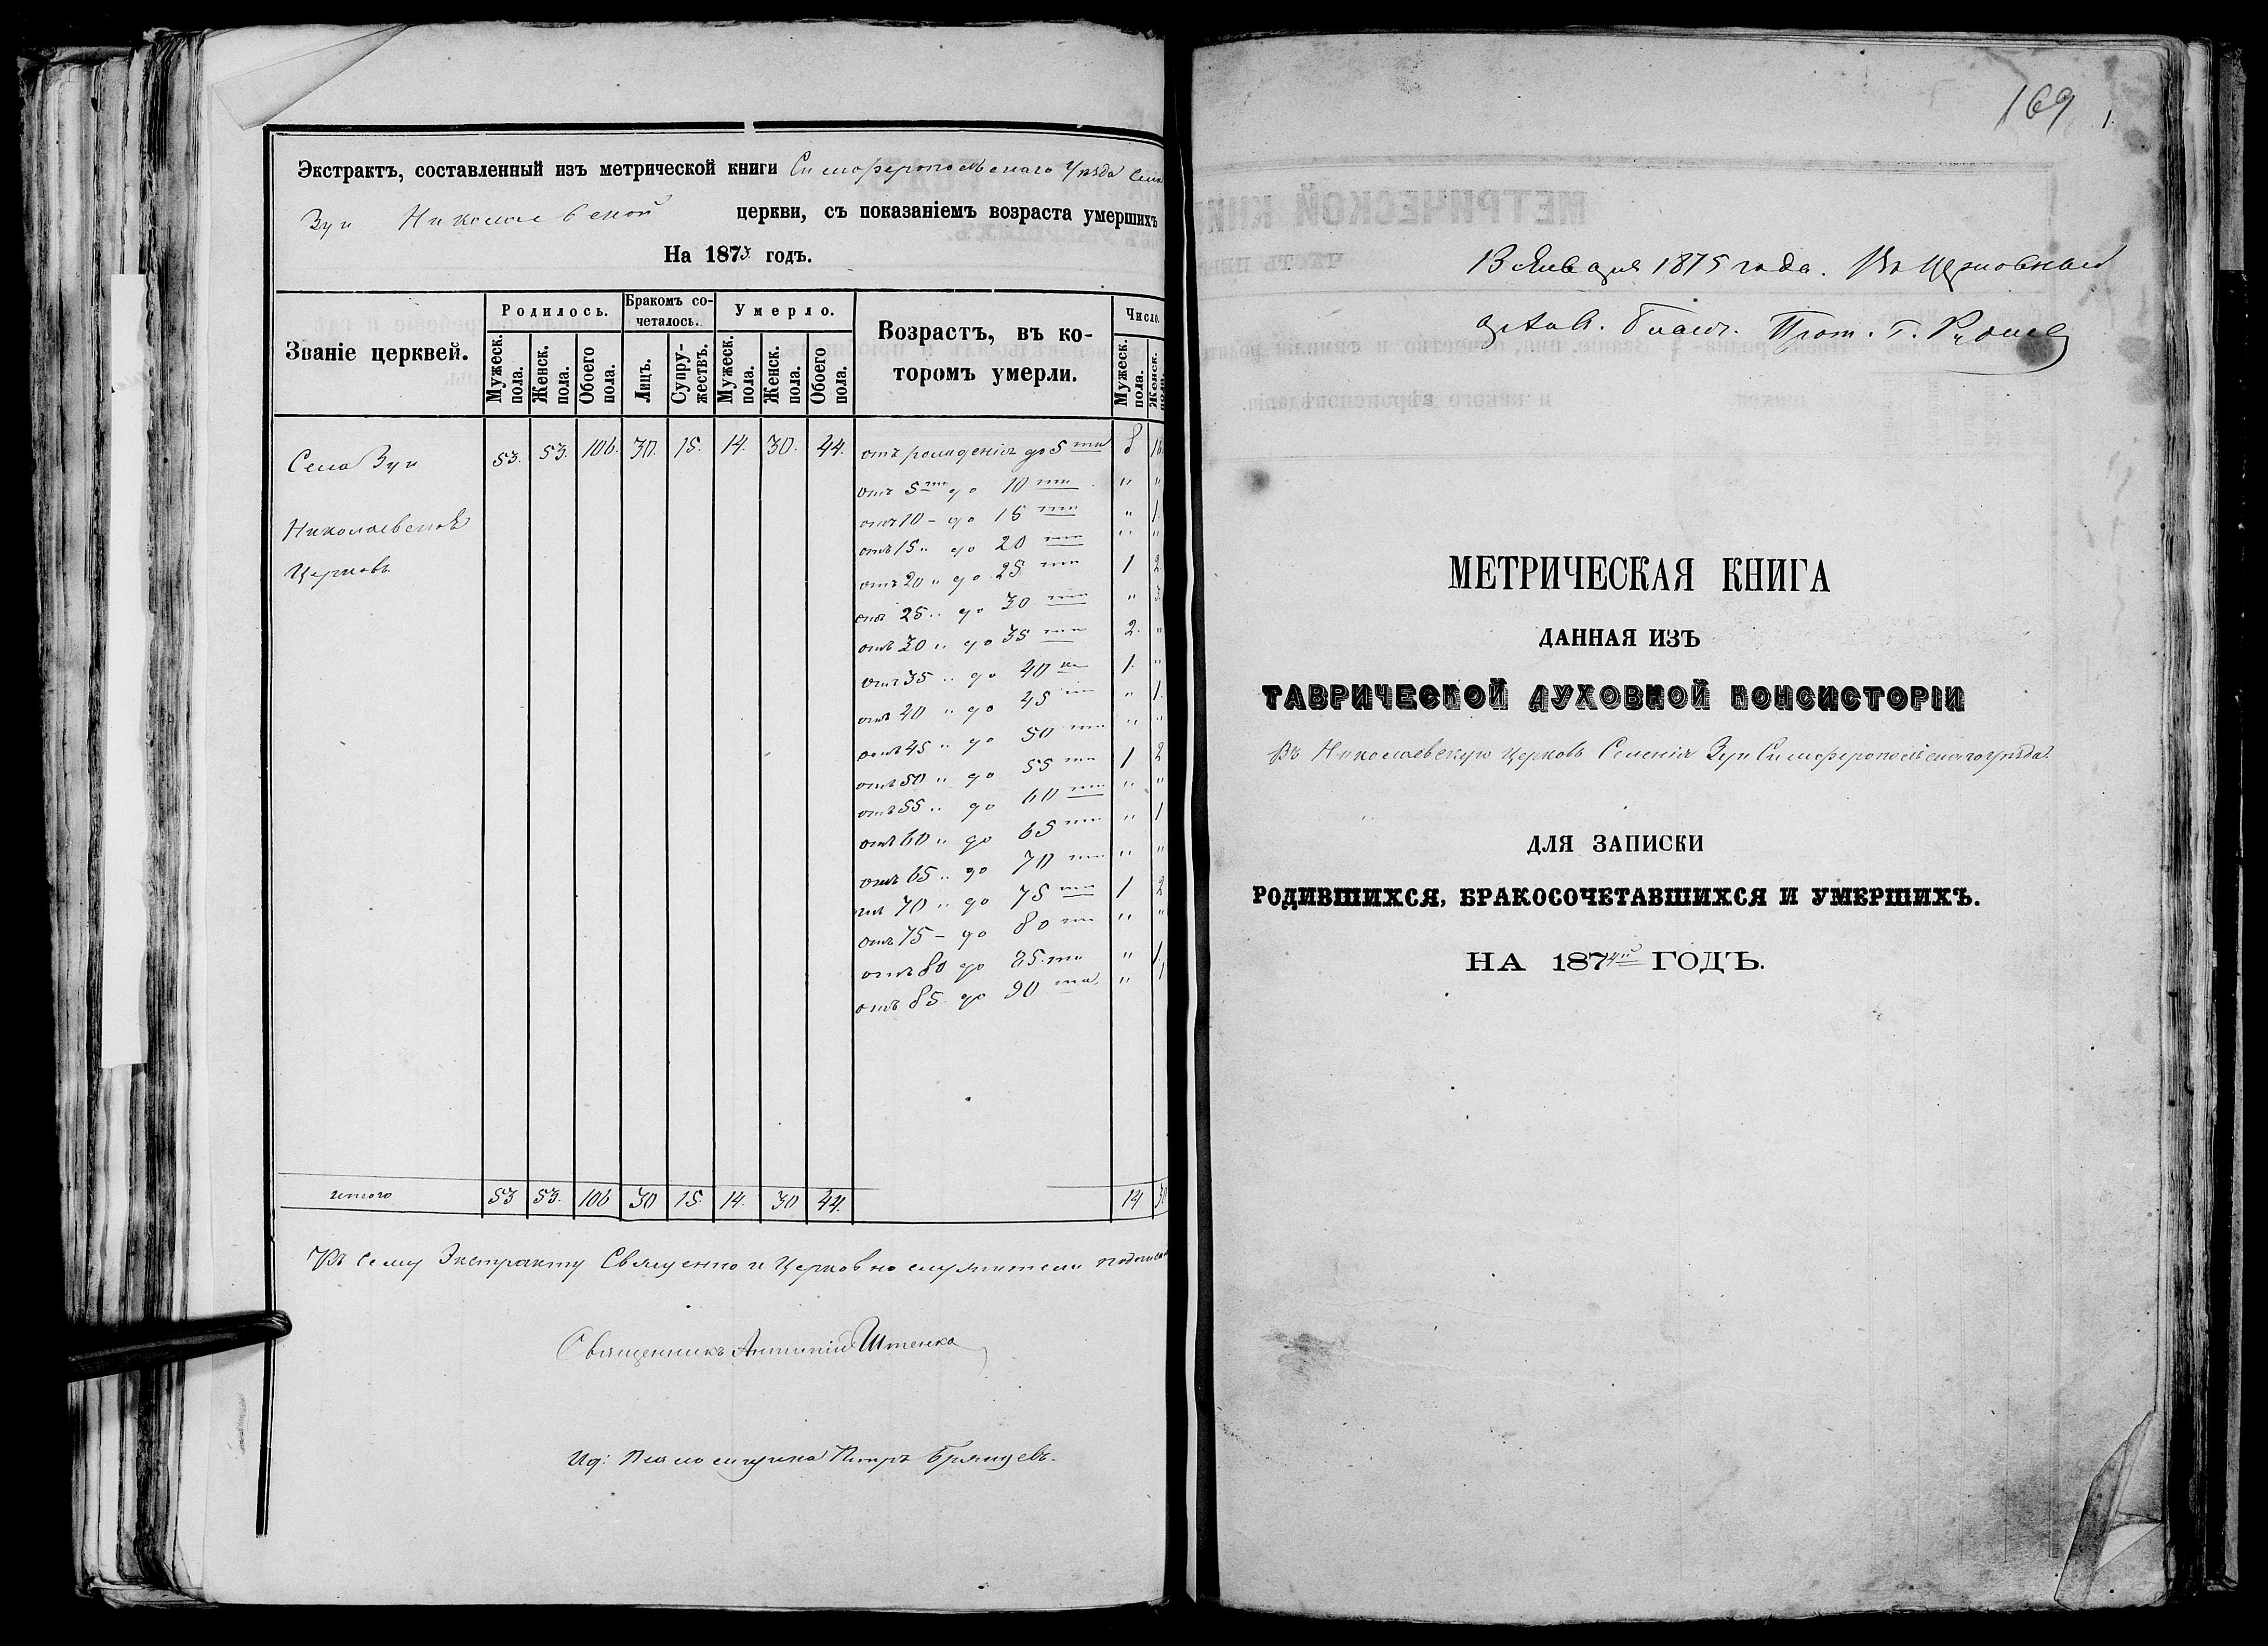 Экстрактъ, составленный изъ метрической книги Симферопольскаго Уѣзда Села
Зуи Николаевской церкви, съ показаніемъ возраста умершихъ
На 1873 годъ.
Званіе церквей.
Родилось.
Бракомъ со-
четалось.
Умерло.
Возрастъ, въ ко-
торомъ умерли.
Число.
Мужеск. пола.
Женск. пола.
Обоего пола.
Лицъ.
Супру-
жествъ.
Мужеск. пола.
Женск. пола.
Обоего пола.
Мужеск. пола.
Женск. пола.
Села Зуи 53. 53. 106. 30. 15. 14. 30. 44. отъ рожденія до 5 ти 8 16
Николаевская
Церковь
отъ 5 ти до 10 ти " "
отъ 10 - до 15 ти " 1.
отъ 15 " до 20 ти " "
отъ 20 " до 25 ти 1 2
отъ 25 " до 30 ти " 3
отъ 30 " до 35 ти 2. "
отъ 35 " до 40 ка 1. "
отъ 40 " до 45 ти " 1.
отъ 45 " до 50 ти " "
отъ 50 " до 55 ти 1 2
отъ 55 " до 60 ти " "
отъ 60 " до 65 ти " 1
отъ 65 " до 70 ти " "
отъ 70 " до 75 ти 1 2
отъ 75 - до 80 ти " "
отъ 80 до 85 ти " 1.
отъ 85 до 90 та. " 1
итого 53 53. 106 30 15. 14. 30 44. 14 30
Къ сему Экстракту Священно и Церковно служители
Священникъ Антоній Штенко
Ид: Псаломщика Петръ Брянцевъ.
169
1.
13 Января 1875 года. Въ Церковный
Прот. Г.
МЕТРИЧЕСКАЯ КНИГА
ДАННАЯ ИЗЪ
ТАВРИЧЕСКОЙ ДУХОВНОЙ КОНСИСТОРІИ
Въ Николаевскую Церковь Селенія Зуи Симферопольскаго уѣзда.
ДЛЯ ЗАПИСКИ
РОДИВШИХСЯ, БРАКОСОЧЕТАВШИХСЯ И УМЕРШИХЪ.
НА 1874й ГОДЪ.